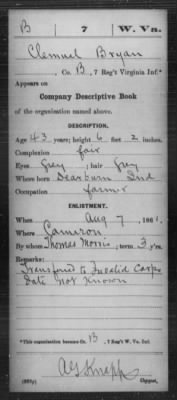 B 7 W. Va.
Clemuel Bryan
, Co. B, 7 Reg't Virginia Inf.*
Appears on
Company Descriptive Book
of the organization named above.
DESCRIPTION.
Age 43 years; height 6 feet 2 inches.
Complexion fair
Eyes Grey; hair Grey
Where born Dearburn Ind
Occupation farmer
ENLISTMENT.
When Aug 7, 1861.
Where Cameron
By whom Thomas Morris; term 3 y'rs.
Remarks:
Transferred to Invalid Corps
Date Not Known
*This organization became Co. B, 7 Reg't W. Va. Inf.
A G Knapp
Copyist.